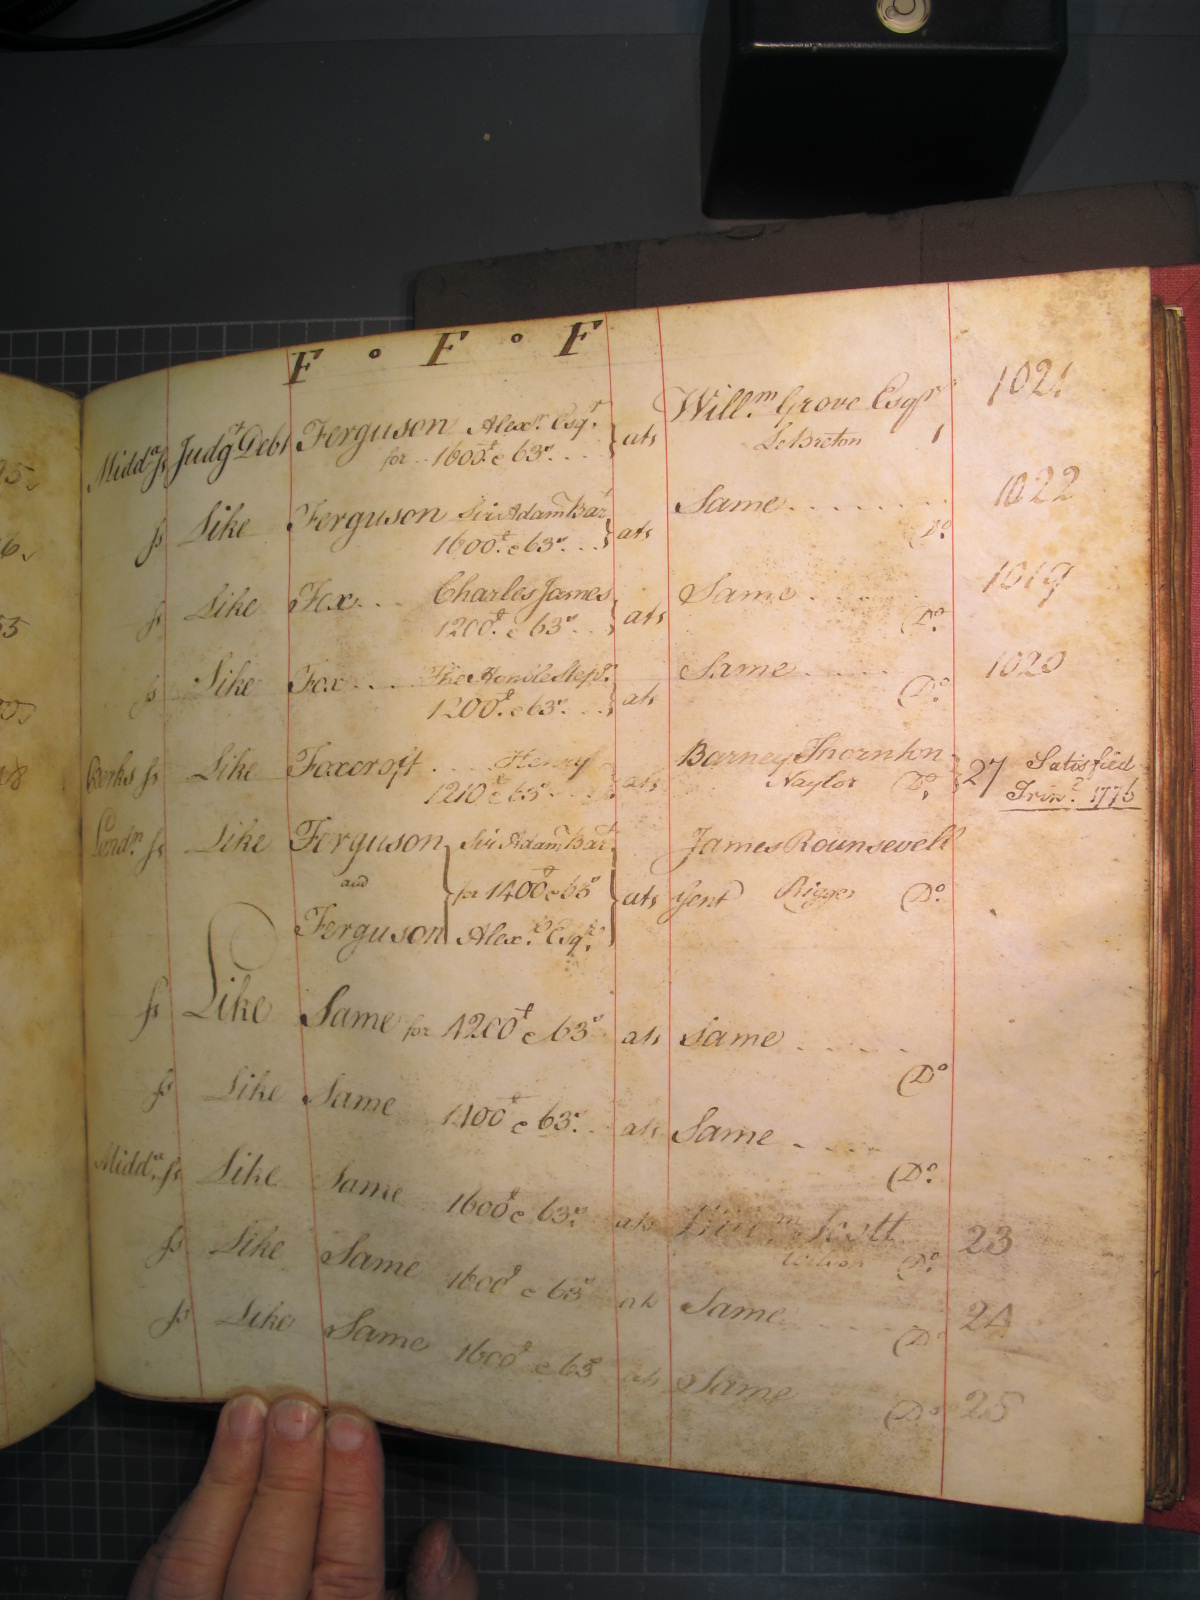 F o F o F
Midd.x ss Judg.t Debt Ferguson Alex.r Esq.r ats Will.m Grove Esq.r 1021
for 1600.£ & 63.s LeBreton
ss Like Ferguson Sir Adam Bar.t ats Same 1022
1600.£ & 63.s D.o
ss Like Fox Charles James ats Same 1019
1200.£ & 63.s D.o
ss Like Fox The Honble Steph.n ats Same 1020
1200.£ & 63.s D.o
Berks ss Like Foxcroft Henry ats Barney Thornton 27 Satisfied
1210£ & 63s Naylor D.o Trin.t 1776
Lond.n ss Like Ferguson Sir Adam Bar.t James Rounsevell
and for 1400£ & 63s ats Gent D.o
Ferguson Alex.r Esq.r
ss Like Same for 4200£ & 63s ats Same
D.o
ss Like Same 1400£ & 63.s ats Same
D.o
Midd.x ss Like Same 1600£ & 63.s ats Scott 23
D.o
ss Like Same 1600£ & 63s ats Same 24
D.o
ss Like Same 1600£ & 63s ats Same
D.o 25